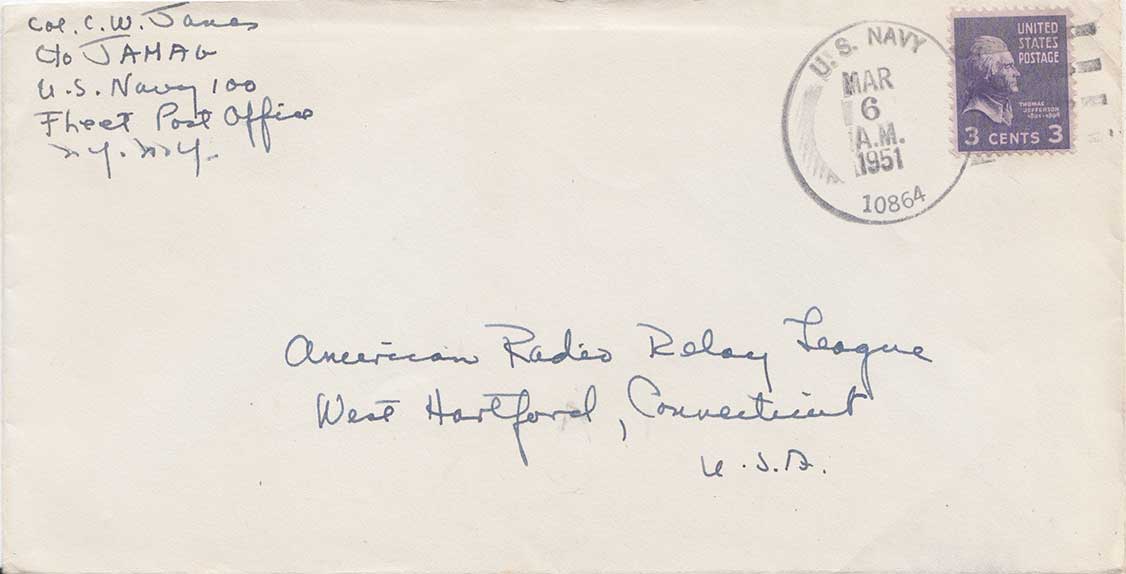 Col. C. W. Janes
C/o JAMAG
U.S. Navy 100
Fleet Post Office
N.Y. N.Y.
U.S. NAVY
MAR
6
A.M.
1951
10864
UNITED
STATES
POSTAGE
THOMAS
JEFFERSON
3 CENTS 3
American Radio Relay League
West Hartford, Connecticut
U.S.A.